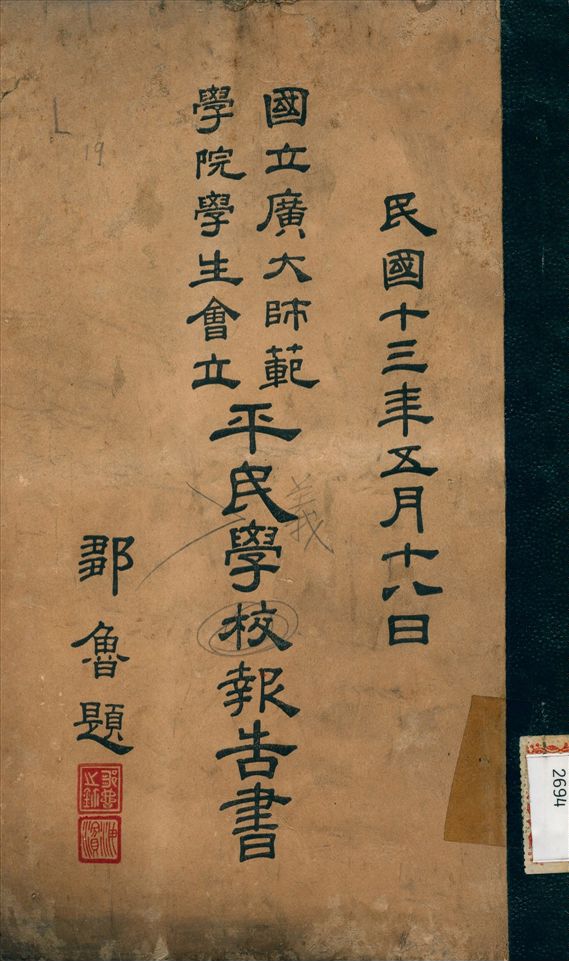 民國十三年五月十八日
國立廣大師範
學院學生會立
平民學校報告書
鄒魯題
鄒魯之鉥
海濱
義
L
19
2694